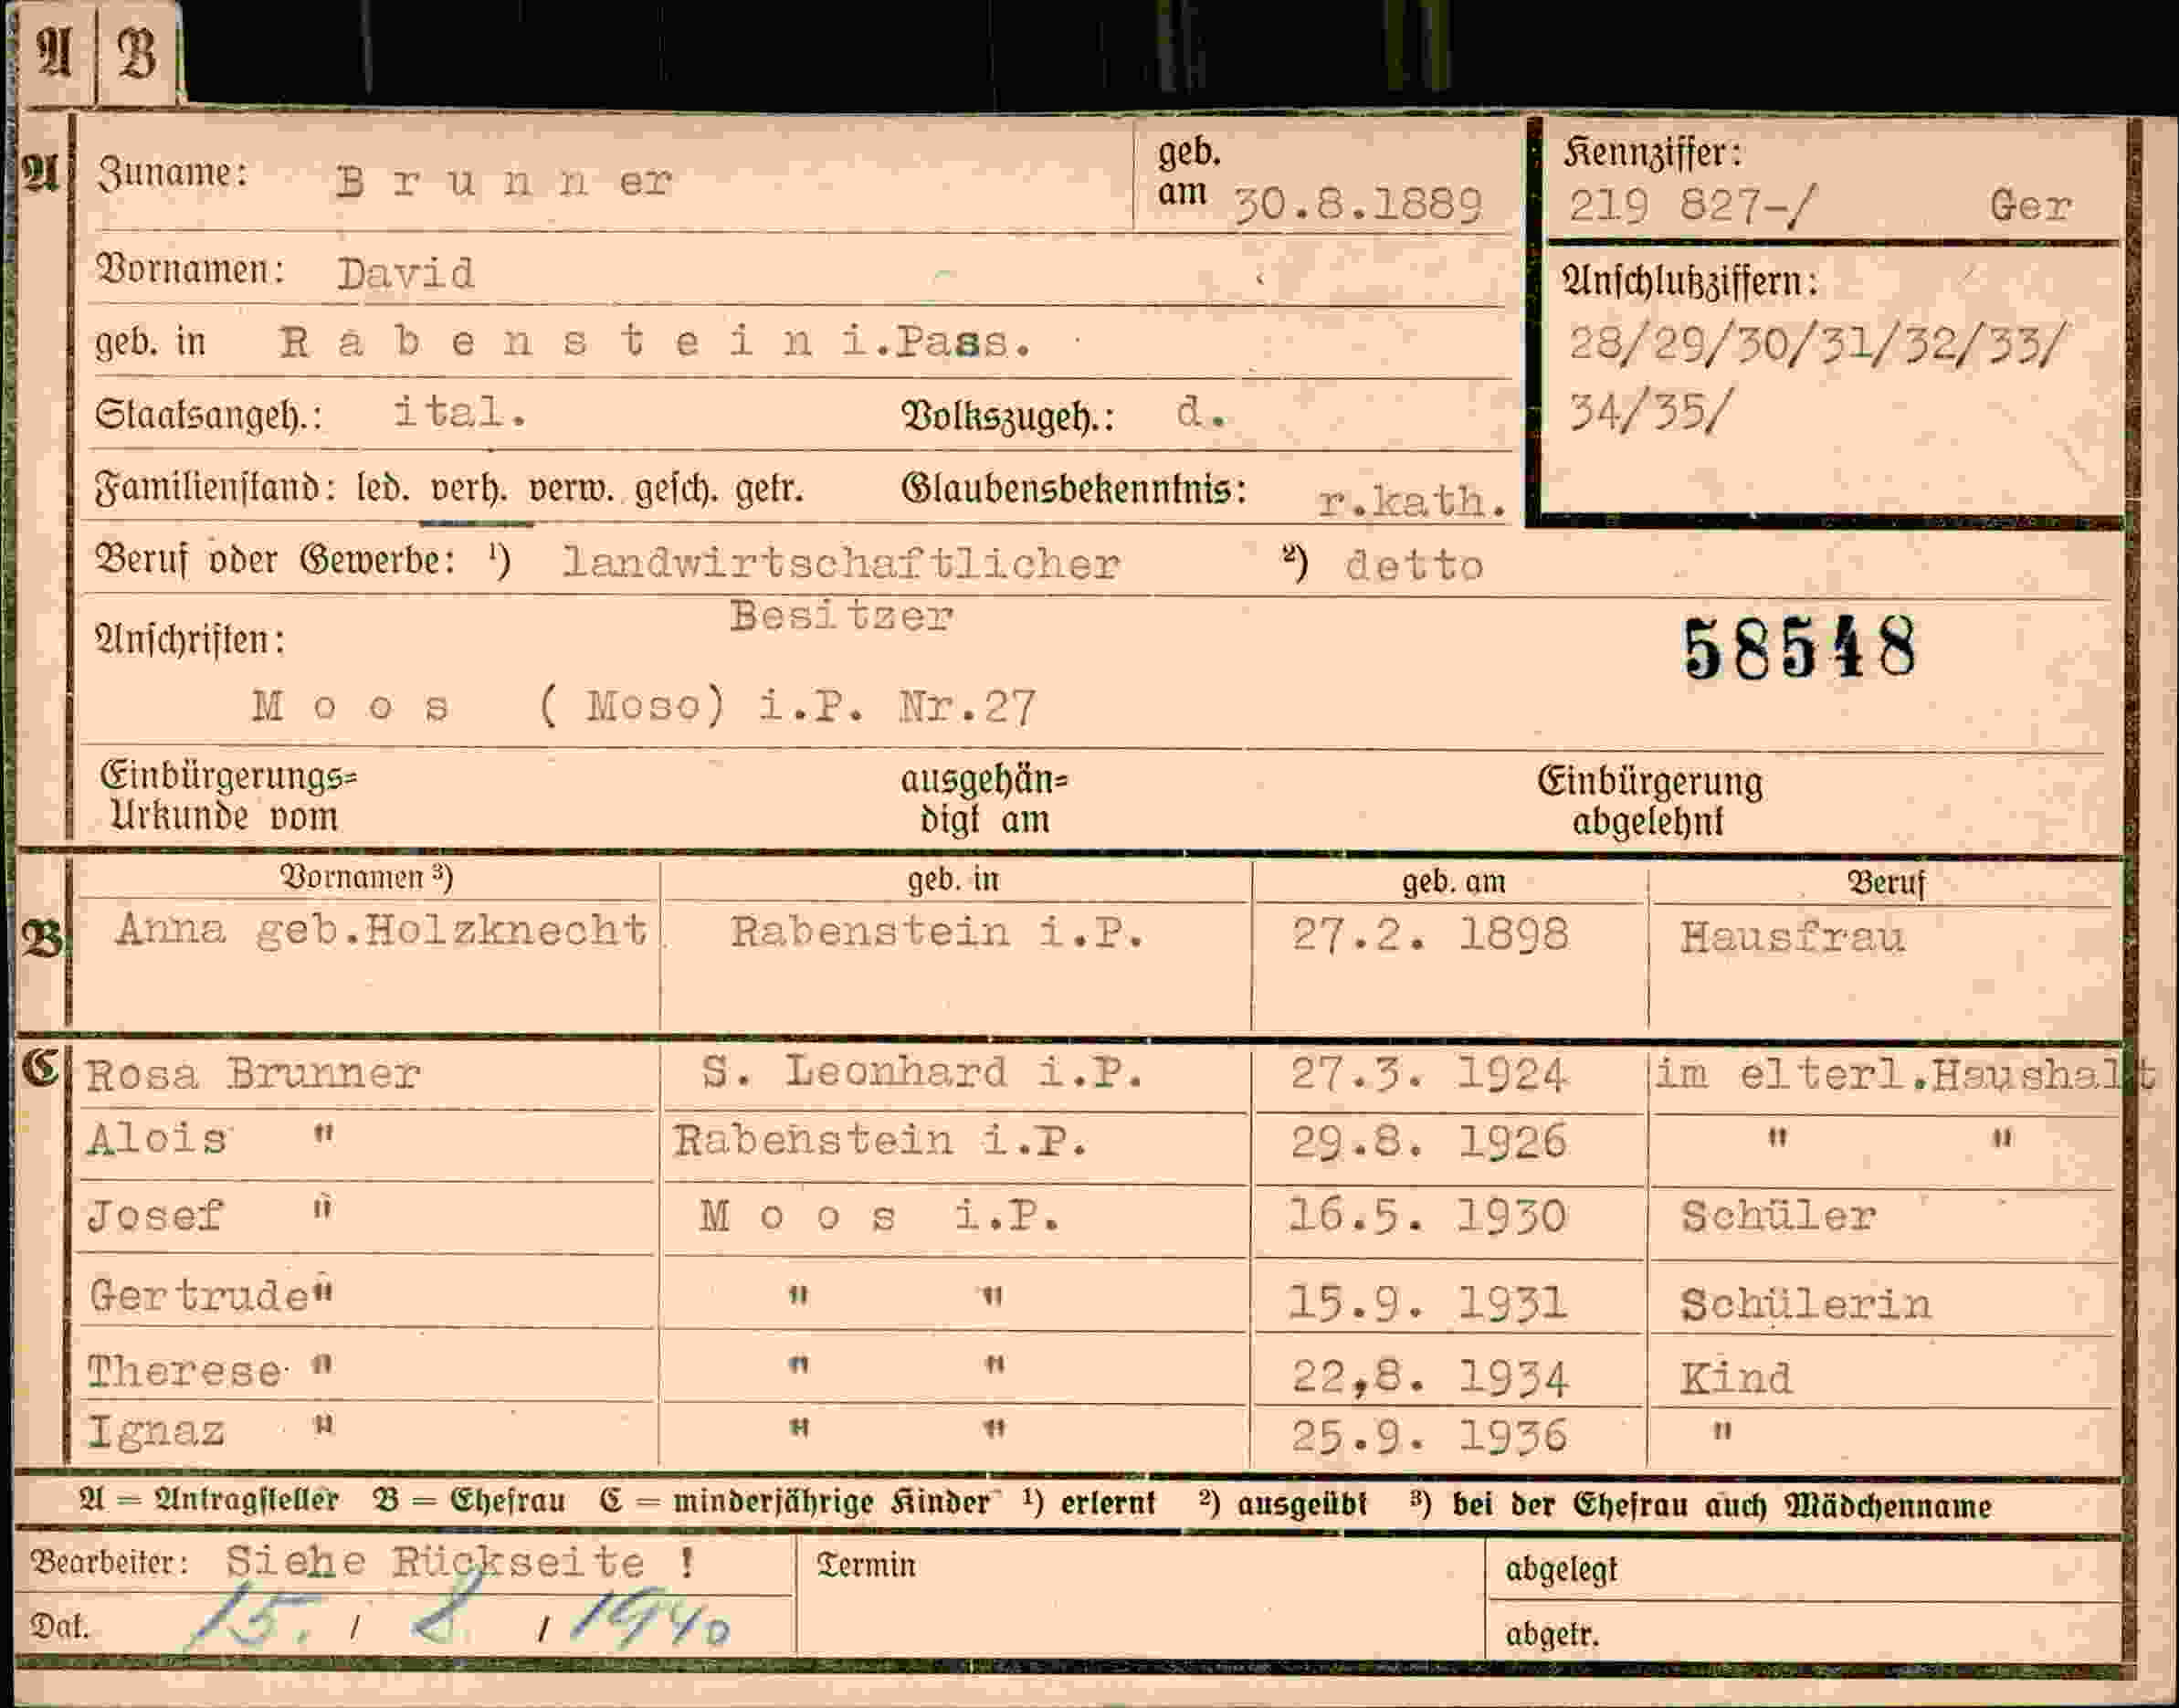 A B
A Zuname: Brunner geb. am 30.8.1889 Kennziffer: 219 827-/ Ger
Vornamen: David Anschlußziffern:
geb. in Rabenstein i.Pass. 28/29/30/31/32/33/
Staatsangeh.: ital. Volkszugeh.: d. 34/35/
Familienstand: led. verh. verw. gesch. getr. Glaubensbekenntnis: r.kath.
Beruf oder Gewerbe: ¹) landwirtschaftlicher ²) detto
Besitzer
Anschriften: 58548
Moos (Moso) i.P. Nr.27
Einbürgerungs= ausgehän= Einbürgerung
Urkunde vom digt am abgelehnt
Vornamen ³) geb. in geb. am Beruf
B Anna geb.Holzknecht Rabenstein i.P. 27.2. 1898 Hausfrau
C Rosa Brunner S. Leonhard i.P. 27.3. 1924 im elterl.Haushalt
Alois " Rabenstein i.P. 29.8. 1926 " "
Josef " Moos i.P. 16.5. 1930 Schüler
Gertrude " " " 15.9. 1931 Schülerin
Therese " " " 22,8. 1934 Kind
Ignaz " " " 25.9. 1936 "
A = Antragsteller B = Ehefrau C = minderjährige Kinder ¹) erlernt ²) ausgeübt ³) bei der Ehefrau auch Mädchenname
Bearbeiter: Siehe Rückseite ! Termin abgelegt
Dat. 15. / 8 / 1940 abgetr.